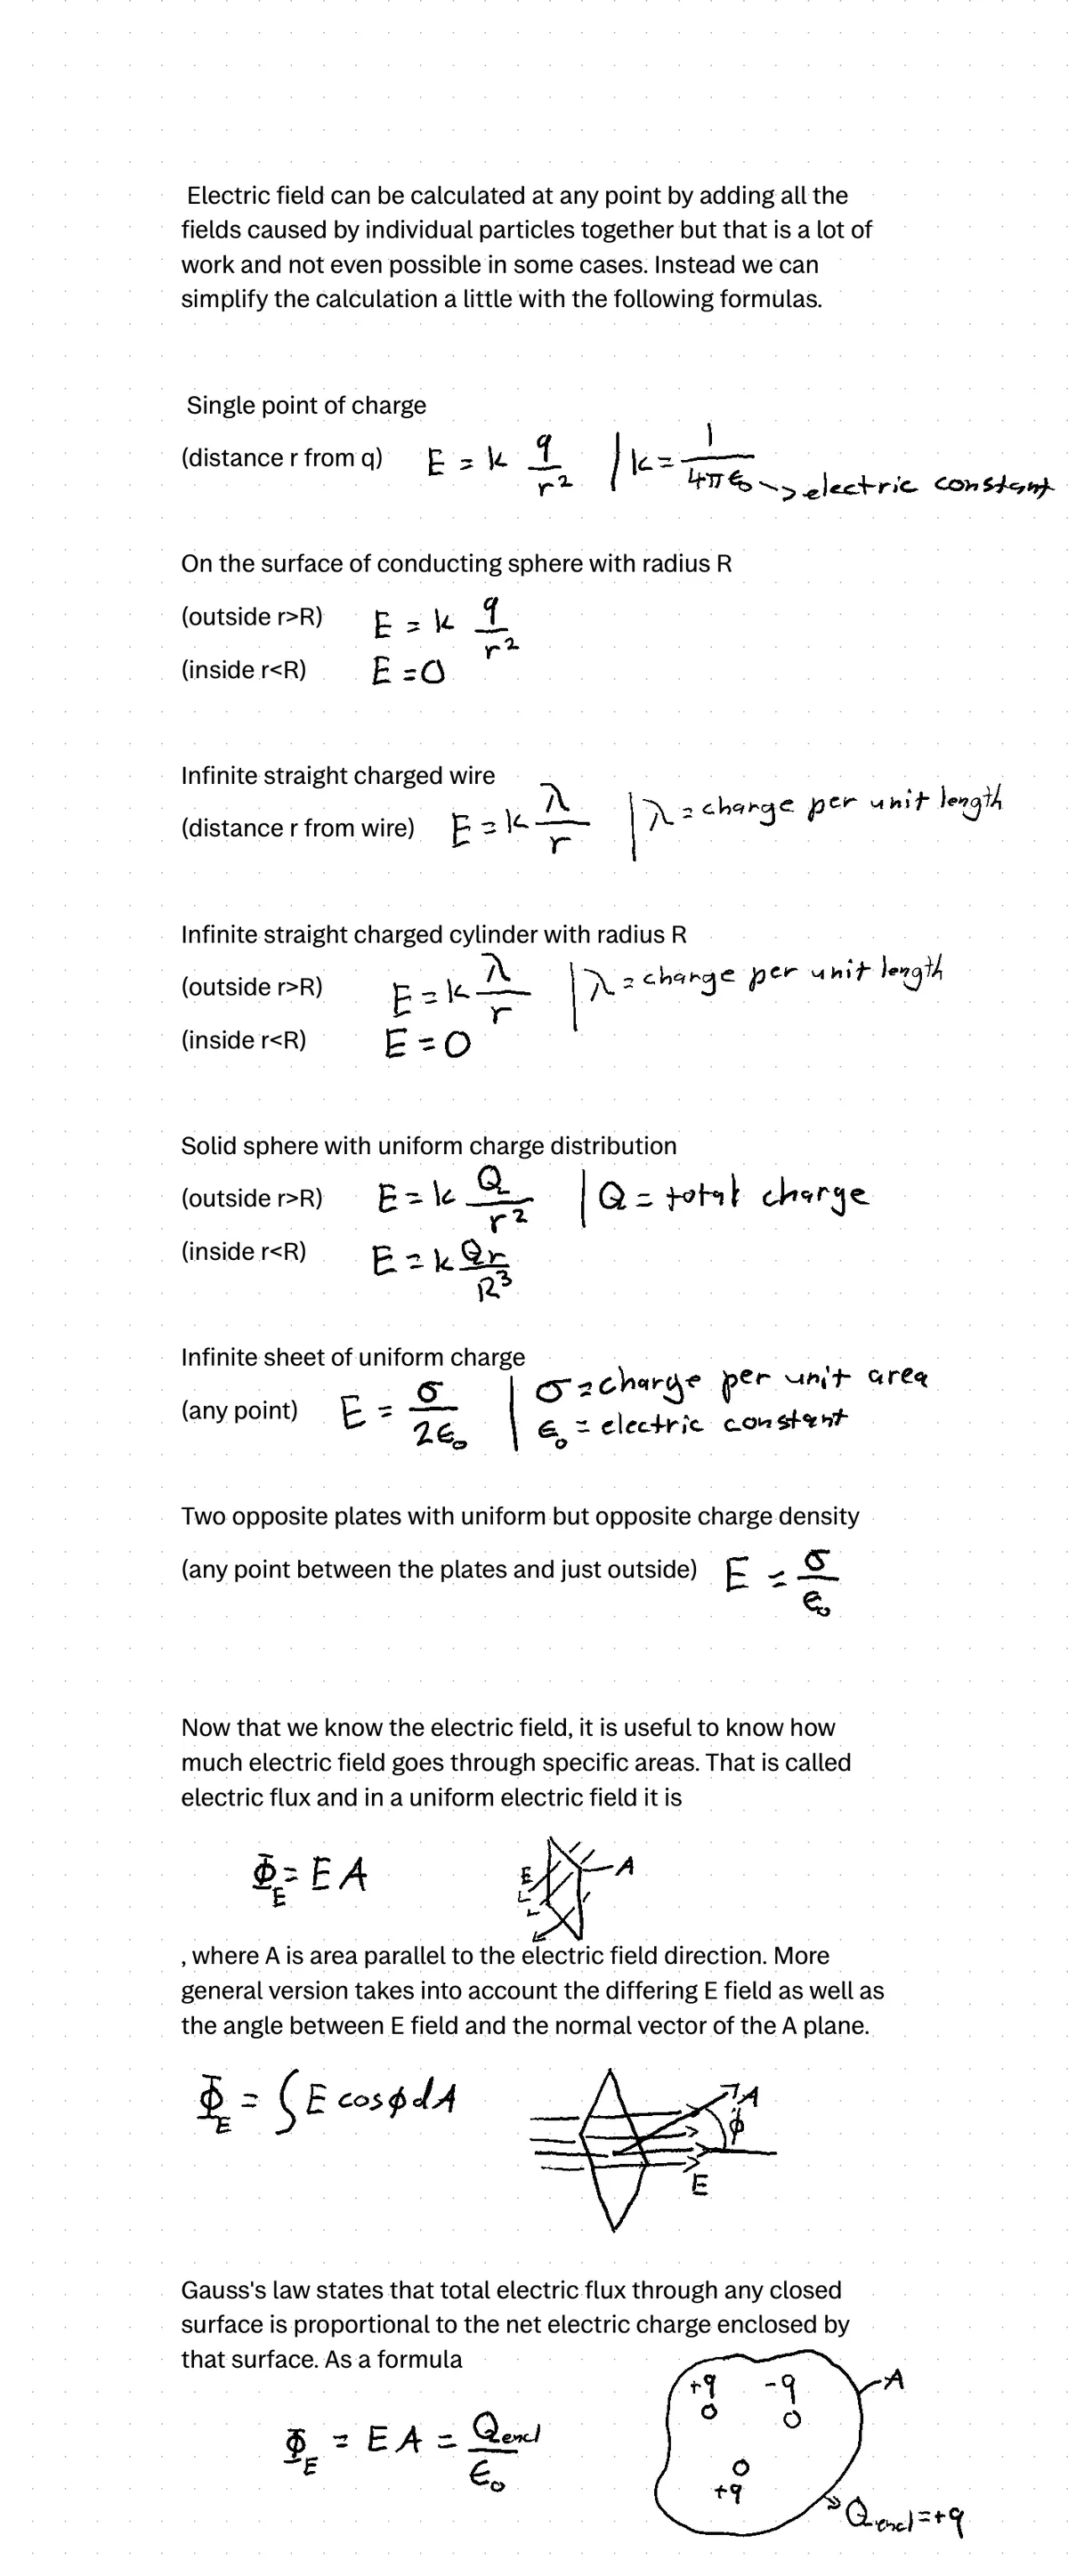 Electric field can be calculated at any point by adding all the
fields caused by individual particles together but that is a lot of
work and not even possible in some cases. Instead we can
simplify the calculation a little with the following formulas.
Single point of charge
(distance r from q) E = k q/r² | k = 1/4πϵ₀ -> electric constant
On the surface of conducting sphere with radius R
(outside r>R) E = k q/r²
(inside r<R) E = 0
Infinite straight charged wire
(distance r from wire) E = k λ/r | λ = charge per unit length
Infinite straight charged cylinder with radius R
(outside r>R) E = k λ/r | λ = charge per unit length
(inside r<R) E = 0
Solid sphere with uniform charge distribution
(outside r>R) E = k Q/r² | Q = total charge
(inside r<R) E = k Qr/R³
Infinite sheet of uniform charge
(any point) E = σ/2ϵ₀ | σ = charge per unit area
ϵ₀ = electric constant
Two opposite plates with uniform but opposite charge density
(any point between the plates and just outside) E = σ/ϵ₀
Now that we know the electric field, it is useful to know how
much electric field goes through specific areas. That is called
electric flux and in a uniform electric field it is
Φ_E = E A
E A
, where A is area parallel to the electric field direction. More
general version takes into account the differing E field as well as
the angle between E field and the normal vector of the A plane.
Φ_E = ∫ E cosϕ dA
A
ϕ
E
Gauss's law states that total electric flux through any closed
surface is proportional to the net electric charge enclosed by
that surface. As a formula
+q -q A
Φ_E = E A = Q_encl/ϵ₀
+q
Q_encl = +q